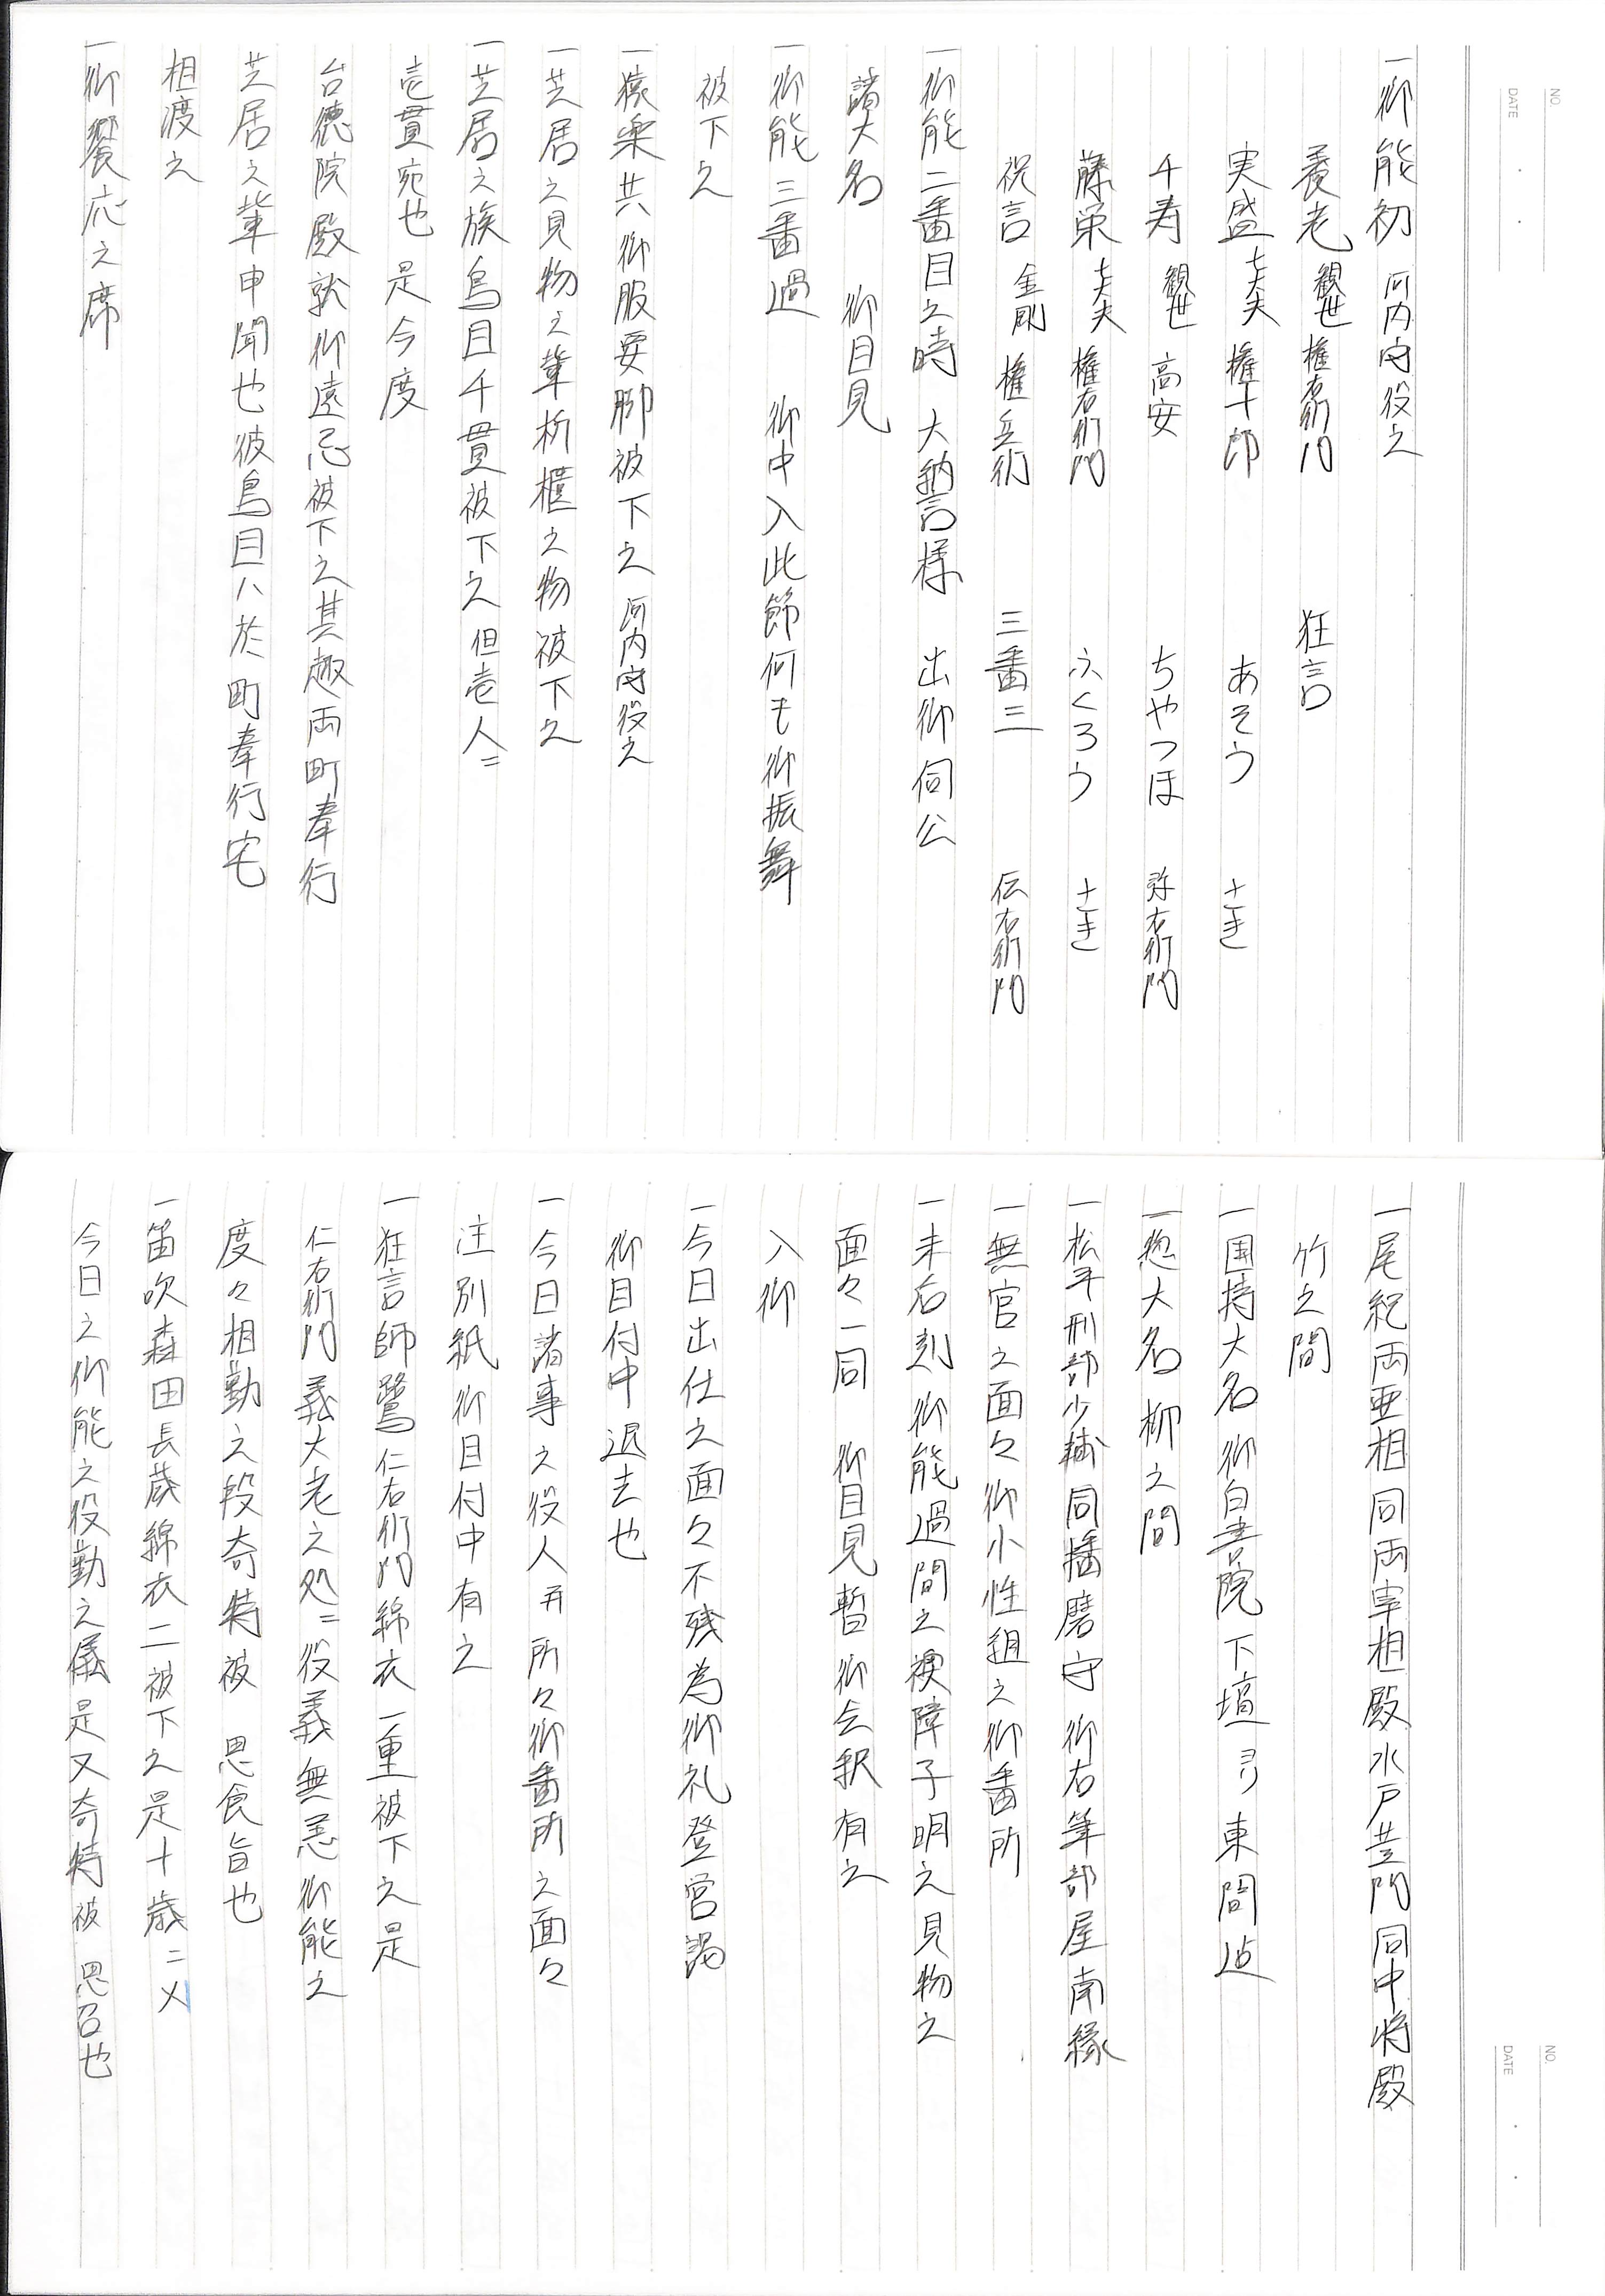 NO.
DATE
一御能初 河内守役之
養老 観世 権右衛門 狂言
実盛 七大夫 権十郎 あそう さぎ
千寿 観世 高安 ちやつほ 弥右衛門
藤栄 七大夫 権右衛門 ふくろう さぎ
祝言 金剛 権兵衛 三番三 伝右衛門
一御能二番目之時 大納言様 出御伺公
諸大名 御目見
一御能三番過 御中入此節何も御振舞
被下之
一猿楽共御服要脚被下之 河内守役之
一芝居之見物之輩折櫃之物被下之
一芝居之族鳥目千貫被下之 但壱人ニ
壱貫宛也 是今度
台徳院殿就御遠忌被下之其趣両町奉行
芝居之輩申聞也彼鳥目ハ於町奉行宅
相渡之
一御饗応之席
NO.
DATE
一尾紀両亜相 同両宰相殿水戸黄門同中将殿
竹之間
一国持大名 御白書院 下壇ゟ東間迠
一惣大名 柳之間
一松平刑部少輔同播磨守 御右筆部屋南縁
一無官之面々御小性組之御番所
一未后刻御能過間之襖障子明之見物之
面々一同 御目見暫御会釈有之
入御
一今日出仕之面々不残為御礼登営謁
御目付中退去也
一今日諸事之役人并所々御番所之面々
注別紙御目付中有之
一狂言師鷺仁右衛門綿衣一重被下之是
仁右衛門義大老之処ニ役義無恙御能之
度々相勤之段奇特被 思食旨也
一笛吹森田長蔵綿衣二被下之是十歳ニ〆
今日之御能之役勤之儀是又奇特被 思召也